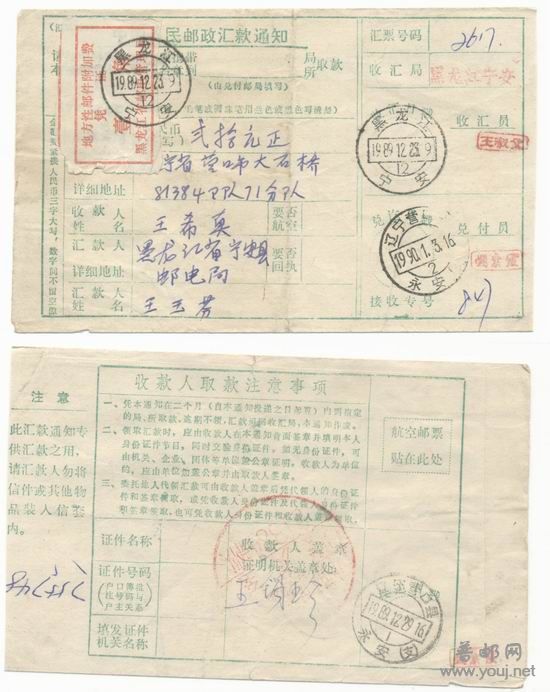 民邮政汇款通知
汇票号码
2617
局
所
取款
收汇局
黑龙江宁安
(由兑付邮局填写)
地方性邮件附加费
凭
黑龙江
1989.12.23.9
12
宁安
收汇员
黑龙江
1989.12.23.9
12
宁安
贰拾元正
省营口市大石桥
详细地址
81384部队71分队
收款人
姓名
王希真
要否
航空
兑付员
辽宁营口
1990.1.3.16
2
永安
汇款人
详细地址
黑龙江省宁安县
邮电局
要否
回执
汇款人
姓名
王玉芳
接收专号
847
收款人取款注意事项
注意
此汇款通知专
供汇款之用,
请汇款人勿将
信件或其他物
品装入信封
内。
一、凭本通知在二个月(自本通知投递之日起算)内到指定
的局、所取款,逾期不领,汇款可退回收汇局,本通知作废。
二、领取汇款时,应由收款人在本通知背面签章并填明本人
身份证件节目,同时交验身份证件,如无身份证件,可
由机关、企业、团体等单位加盖公章证明,收款人为单位
的,应由单位加盖公章并由收款人签章。
三、委托他人代领汇款可由收款人签章后凭代领人的身份证
件和签章领取,或凭收款人身份证件及代领人身份证件
和签章领取,也可凭收款人身份证件和收款人签章领取。
航空邮票
贴在此处
证件名称
收款人盖章
证明机关盖章处:
证件号码
(户口簿批
注号码与
户主关系)
填发证件
机关名称
1989.12.29.16
1
永安(支)
普邮网
www.youj.net